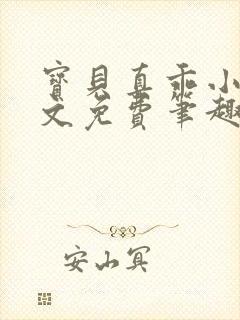 寶貝真乖小
文免費筆趣
安山冥